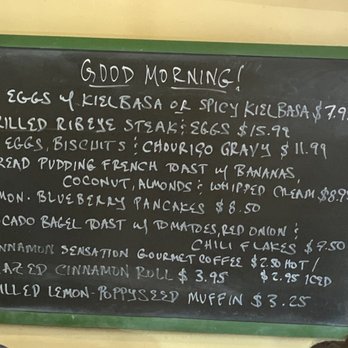 GOOD MORNING!
EGGS w/ KIELBASA OR SPICY KIELBASA $7.9
RILLED RIBEYE STEAK & EGGS $15.99
EGGS, BISCUITS & CHOURIÇO GRAVY $11.99
READ PUDDING FRENCH TOAST w/ BANANAS,
COCONUT, ALMONDS & WHIPPED CREAM $8.99
MON-BLUEBERRY PANCAKES $8.50
OCADO BAGEL TOAST w/ TOMATOES, RED ONION &
CHILI FLAKES $7.50
NNAMON SENSATION GOURMET COFFEE $2.50 HOT/
AZED CINNAMON ROLL $3.95 $2.95 ICED
ILLED LEMON-POPPYSEED MUFFIN $3.25